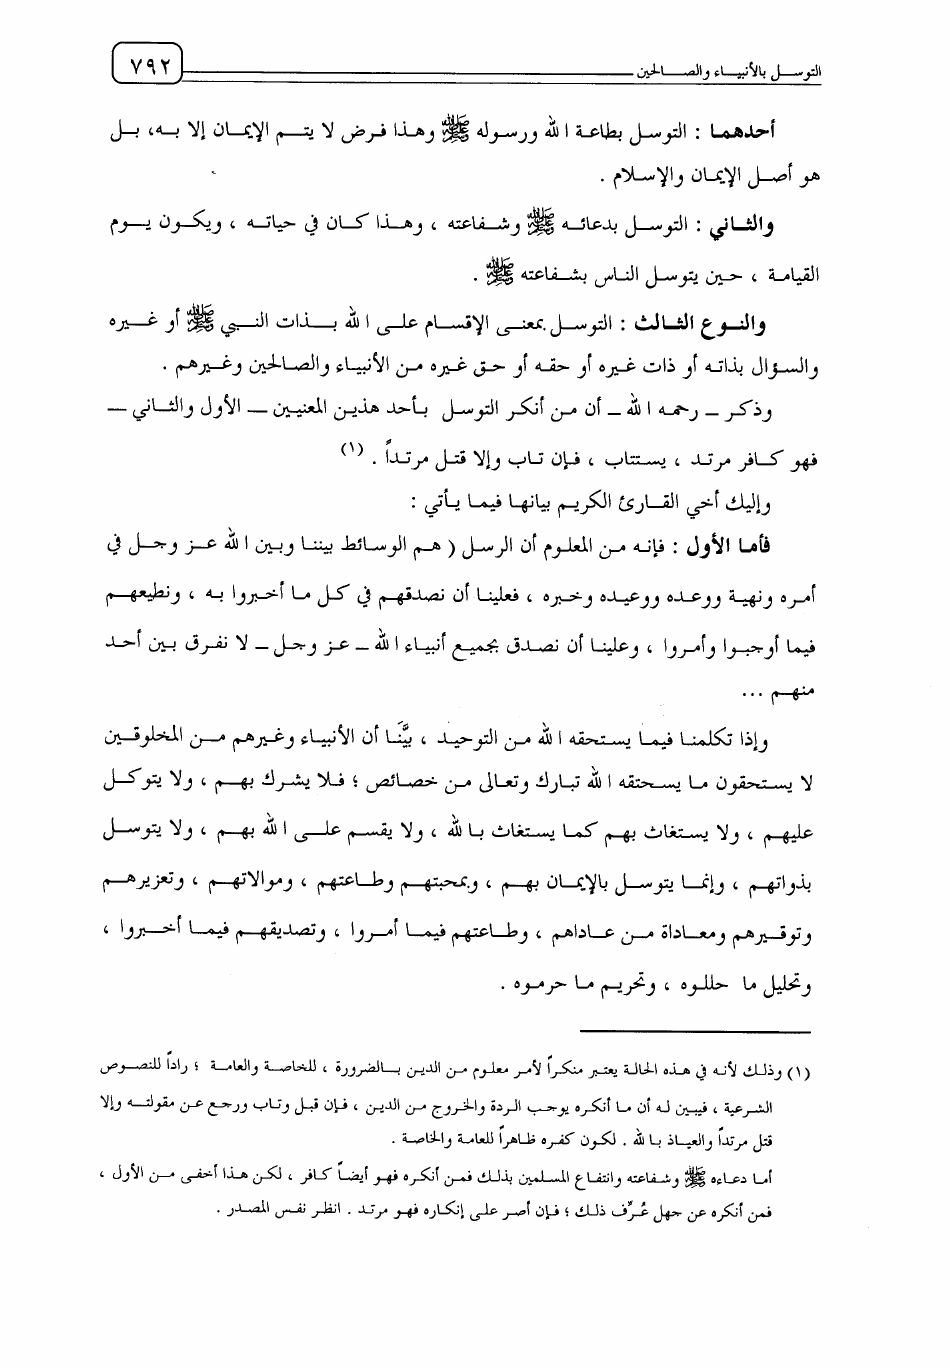 التوسل بالأنبياء والصالحين
٧٩٢
أحدهما : التوسل بطاعة الله ورسوله ﷺ وهذا فرض لا يتم الإيمان إلا به، بل
هو أصل الإيمان والإسلام .
والثاني : التوسل بدعائه ﷺ وشفاعته ، وهذا كان في حياته ، ويكون يوم
القيامة ، حين يتوسل الناس بشفاعته ﷺ .
والنوع الثالث : التوسل بمعنى الإقسام على الله بذات النبي ﷺ أو غيره
والسؤال بذاته أو ذات غيره أو حقه أو حق غيره من الأنبياء والصالحين وغيرهم .
وذكر – رحمه الله – أن من أنكر التوسل بأحد هذين المعنيين – الأول والثاني –
فهو كافر مرتد ، يستتاب ، فإن تاب وإلا قتل مرتداً . (١)
وإليك أخي القارئ الكريم بيانها فيما يأتي :
فأما الأول : فإنه من المعلوم أن الرسل ( هم الوسائط بيننا وبين الله عز وجل في
أمره ونهية ووعده ووعيده وخبره ، فعلينا أن نصدقهم في كل ما أخبروا به ، ونطيعهم
فيما أوجبوا وأمروا ، وعلينا أن نصدق بجميع أنبياء الله – عز وجل – لا نفرق بين أحد
منهم ...
وإذا تكلمنا فيما يستحقه الله من التوحيد ، بيَّنَا أن الأنبياء وغيرهم من المخلوقين
لا يستحقون ما يستحقه الله تبارك وتعالى من خصائص ؛ فلا يشرك بهم ، ولا يتوكل
عليهم ، ولا يستغاث بهم كما يستغاث بالله ، ولا يقسم على الله بهم ، ولا يتوسل
بذواتهم ، وإنما يتوسل بالإيمان بهم ، وبمحبتهم وطاعتهم ، وموالاتهم ، وتعزيرهم
وتوقيرهم ومعاداة من عاداهم ، وطاعتهم فيما أمروا ، وتصديقهم فيما أخبروا ،
وتحليل ما حللوه ، وتحريم ما حرموه .
(١) وذلك لأنه في هذه الحالة يعتبر منكراً لأمر معلوم من الدين بالضرورة ، للخاصة والعامة ؛ راداً للنصوص
الشرعية ، فيبين له أن ما أنكره يوجب الردة والخروج من الدين ، فإن قبل وتاب ورجع عن مقولته وإلا
قتل مرتداً والعياذ بالله . لكون كفره ظاهراً للعامة والخاصة .
أما دعاءه ﷺ وشفاعته وانتفاع المسلمين بذلك فمن أنكره فهو أيضاً كافر ، لكن هذا أخفى من الأول ،
فمن أنكره عن جهل عُرِّف ذلك ؛ فإن أصر على إنكاره فهو مرتد . انظر نفس المصدر .